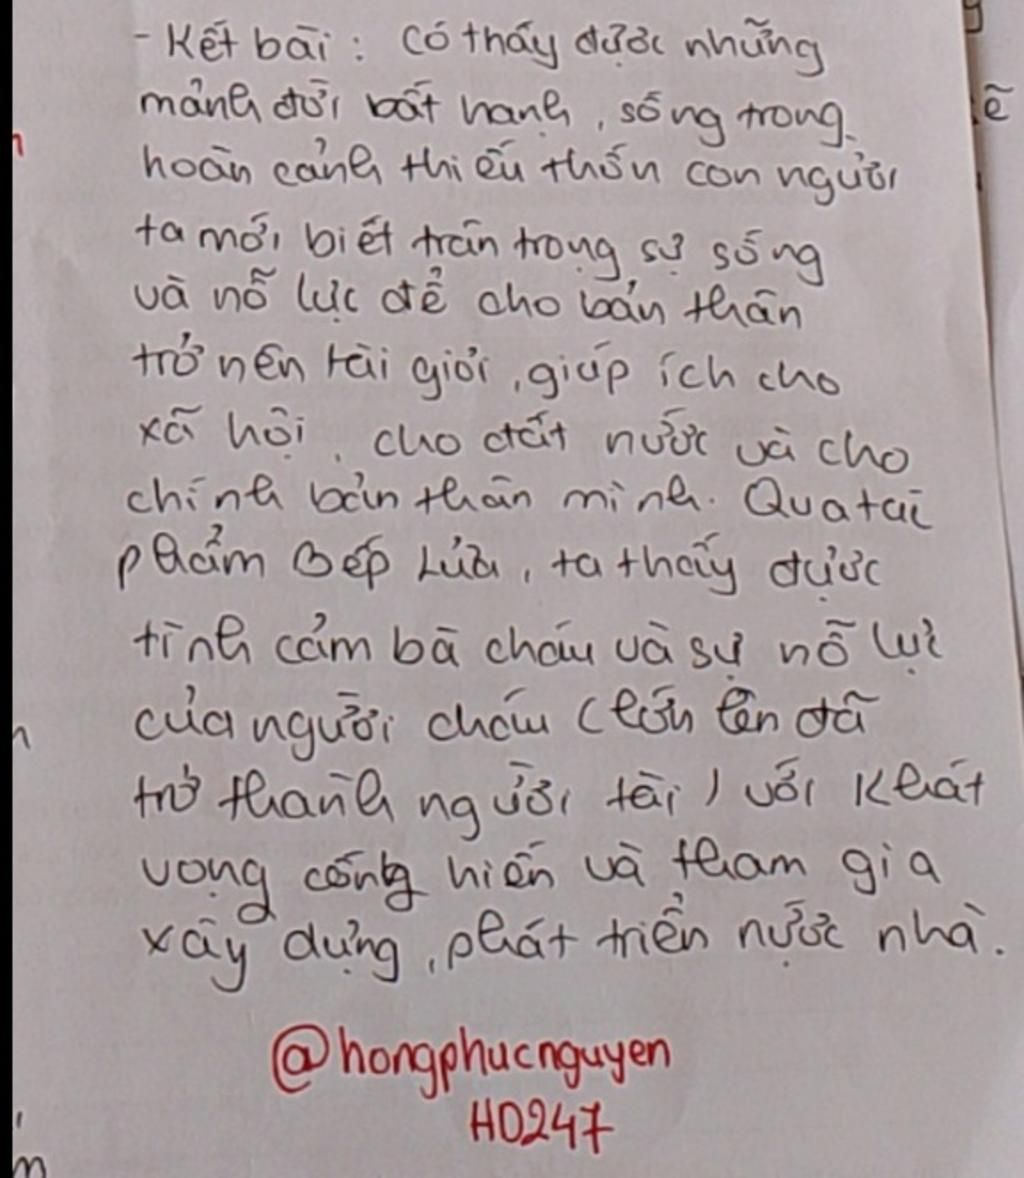 - Kết bài : Có thấy được những
mảnh đời bất hạnh, sống trong
hoàn cảnh thiếu thốn con người
ta mới biết trân trọng sự sống
và nỗ lực để cho bản thân
trở nên tài giỏi, giúp ích cho
xã hội, cho đất nước và cho
chính bản thân mình. Qua tác
phẩm Bếp Lửa, ta thấy được
tình cảm bà cháu và sự nỗ lực
của người cháu (lớn lên đã
trở thành người tài) với khát
vọng cống hiến và tham gia
xây dựng, phát triển nước nhà.
@hongphucnguyen
HD247